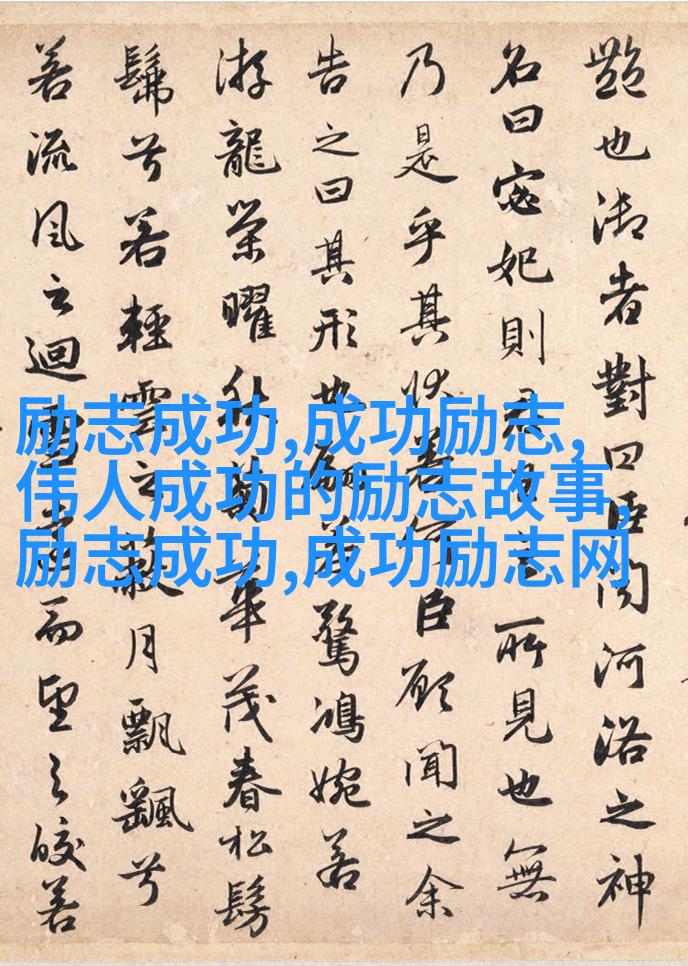 艷也御者對曰臣聞河洛之神
名曰宓妃則君所見也無
乃是乎其狀若何臣願聞之余
告之曰其形也翩若驚鴻婉若
游龍榮曜秋菊華茂春松髣
髴兮若輕雲之蔽月飄飖兮
若流風之迴雪遠而望之皎若
励志成功,成功励志,
伟人成功的励志故事,
励志成功,成功励志网